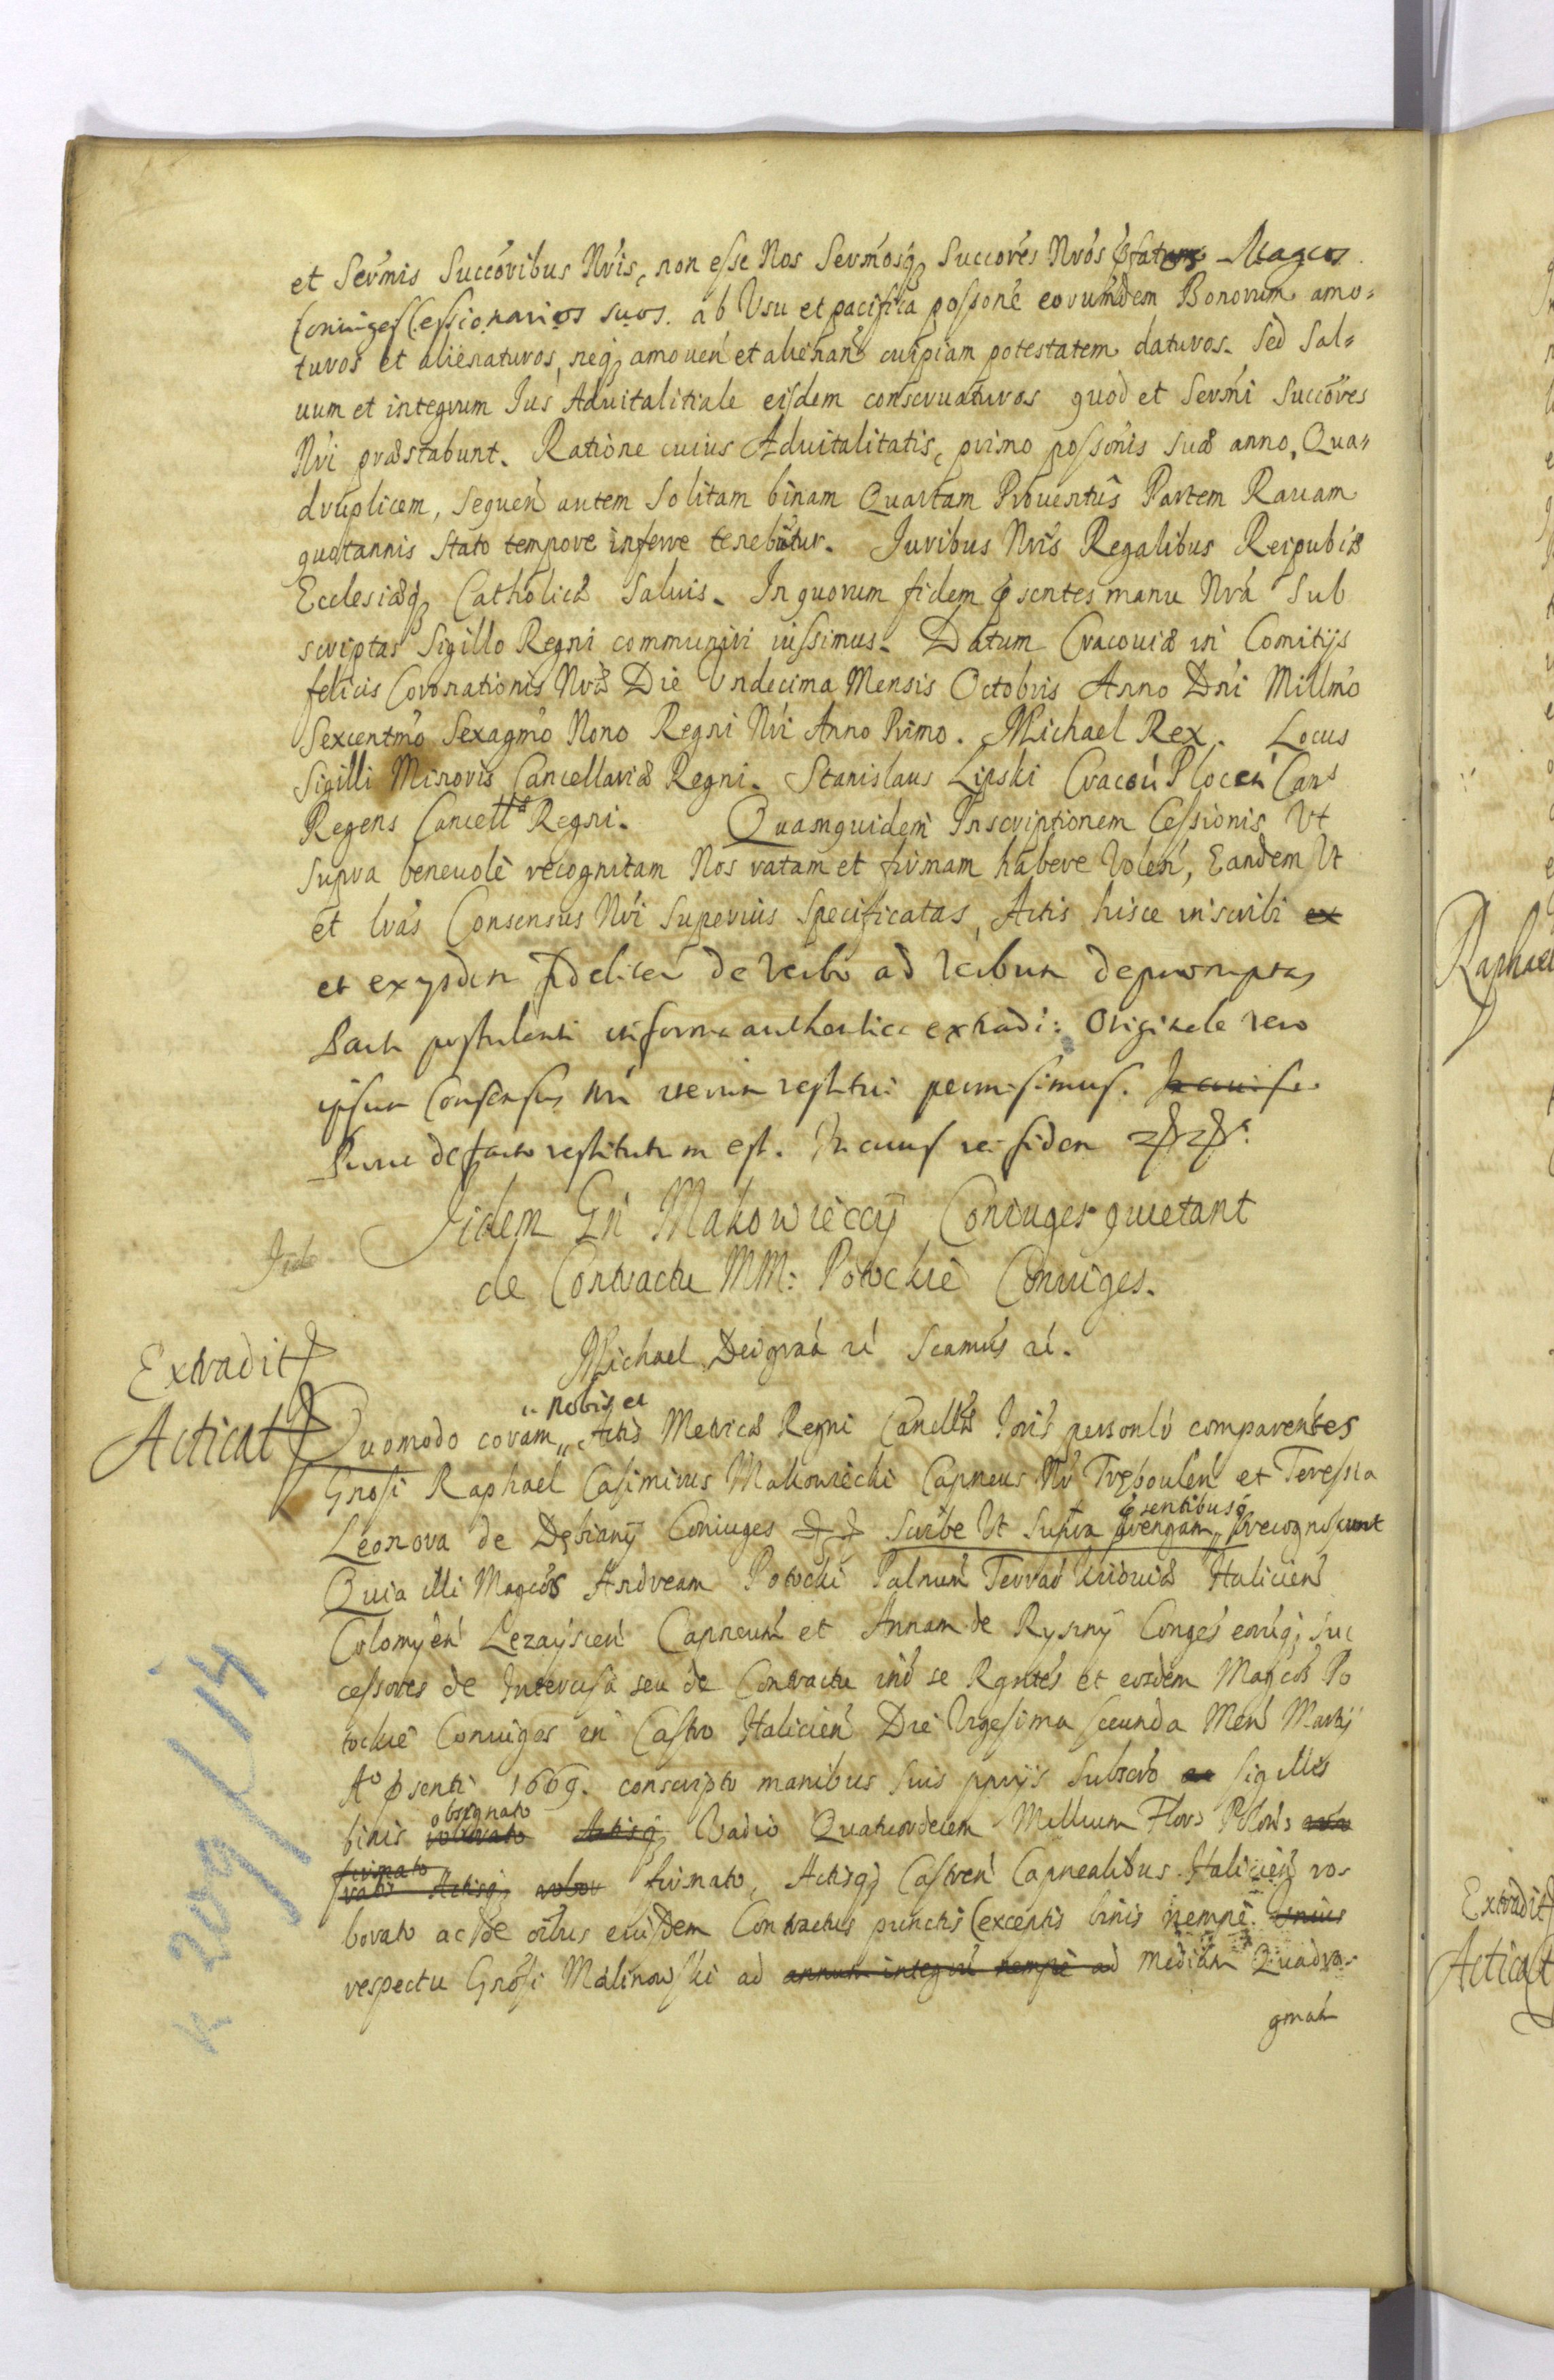 et Sermis Succoribus Nris, non esse Nos Sermosq; Succores Nros pfatos Magcos
Coniuges Cessionarios suos. ab Usu et pacifica possone eorumdem Bonorum amo=
turos et alienaturos, neq; amouen et alienan cuipiam potestatem daturos. Sed Sal=
uum et integrum Ius Aduitalitiale eisdem conseruaturos quod et Sermi Succores
Nri præstabunt. Ratione cuius Aduitalitatis, primo possonis suæ anno, Qua=
druplicem, sequen autem solitam binam Quartam Prouentus Partem Rauam
quotannis stato tempore inferre tenebutur. Iuribus Nris Regalibus Reipubcæ
Ecclesiæq; Catholicæ saluis. In quorum fidem psentes manu Nra Sub
scriptas Sigillo Regni communiri iussimus. Datum Cracouiæ in Comitijs
felicis Coronationis Nræ Die Undecima Mensis Octobris Anno Dni Millmo
Sexcentmo Sexagmo Nono Regni Nri Anno Primo. Michael Rex. Locus
Sigilli Minoris Cancellariæ Regni. Stanislaus Lipski Cracou Plocen Cans
Regens Cancellæ Regni. Quamquidem Inscriptionem Cessionis Ut
supra beneuole recognitam Nos ratam et firmam habere Volen, Eandem Ut
et lras Consensus Nri superius specificatas, Actis hisce inscribi ex
et exijsdem fideliter de Verbo ad Verbum depromptas
Parti postulanti in forma authentica extradi: Originale vero
ipsum Consensus Nri iterum restitui permisimus. In cuius
Purre de facto restitutum est. In cuius rei fidem
Iidem Gn Makowieccy Coniuges quietant
de Contractu MM: Potockie Coniuges.
Michael Dei graa re Scamus re.
Extradit
Acticat
nobis et
Quomodo coram Actis Metricæ Regni Cancellæ Noris personlr comparentes
Grosi Raphael Casimirus Makowiecki Capneus Nr Tręboulen et Teressia
psentibusq
Leonora de Dębiany Coniuges scribe Ut supra recognoscunt
Quia illi Magcos Andream Potocki Palnum Terrar Kiiouiæ Haliciën
Colomyën Lezayscen Capneum et Annam de Rysiny Conges eorüq; suc
cessores de Intercisa seu de Contractu intr se Rgntes et eosdem Magcos Po
tockie Coniuges in Castro Halicien Die Vigesima secunda Men Martij
Ao psenti 1669. conscripto manibus suis pprijs subscro sigillis
obsignato
binis Actisq; Vadio Quatuordecim Millium Flor Polon
firmato
Actisq; robor firmato, Actisq; Castren Capnealibus Halicien ro=
borato ac de oibus eiusdem Contractus punctis (exceptis binis nempe Unius
respectu Grosi Malinowski ad annum integru nempe ad mediam Quadra=
gmam
K 209/14
Raphael
Extradit
Acticat